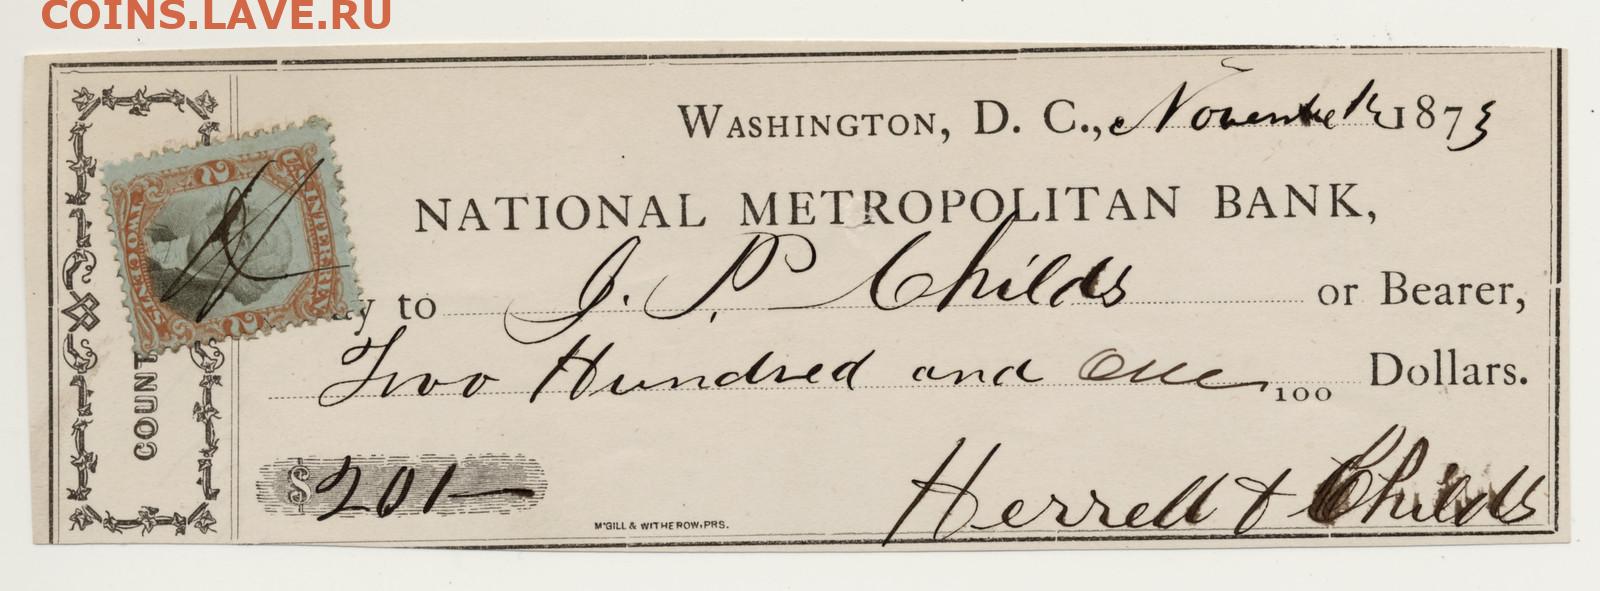 COINS.LAVE.RU
WASHINGTON, D. C., November 12 1873
NATIONAL METROPOLITAN BANK,
to J. P. Childs or Bearer,
Two Hundred and One 100 Dollars.
$ 201—
Herrell & Childs
M'GILL & WITHEROW, PRS.
COUNT
U.S. INTER. REV.
TWO CENTS
2
2